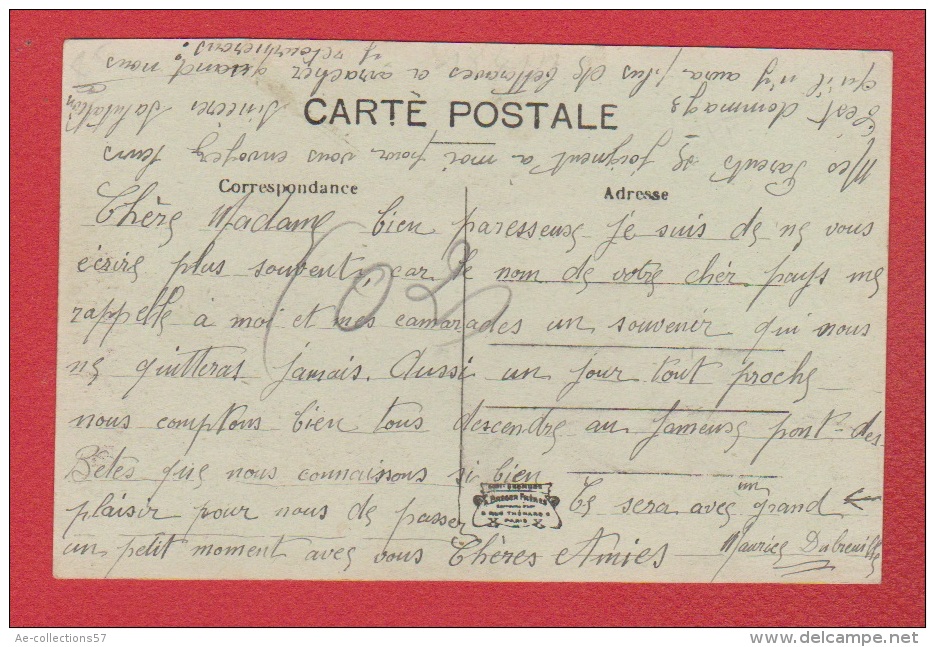 CARTE POSTALE
Correspondance
Adresse
Chère Madame bien paresseuse je suis de ne vous
écrire plus souvent, car le nom de votre cher pays me
rappelle a moi et mes camarades un souvenir qui nous
ne quitteras jamais. Aussi un jour tout proche
nous comptons bien tous descendre au fameuse pont-des
Bêtes que nous connaissons si bien
Ce sera avec un grand
plaisir pour nous de passer
un petit moment avec vous Chères Amies
Maurice Dubreuille
Mes Parents se joignent a moi pour vous envoyez leurs
Sincères Salutation
C'est dommage
qu'il n'y aura plus de betteraves a arracher quand nous
y retournerons.
(62)
BERGER FRÈRES
9 RUE THÉNARD 9
PARIS
Ae-collections57
www.delcampe.net